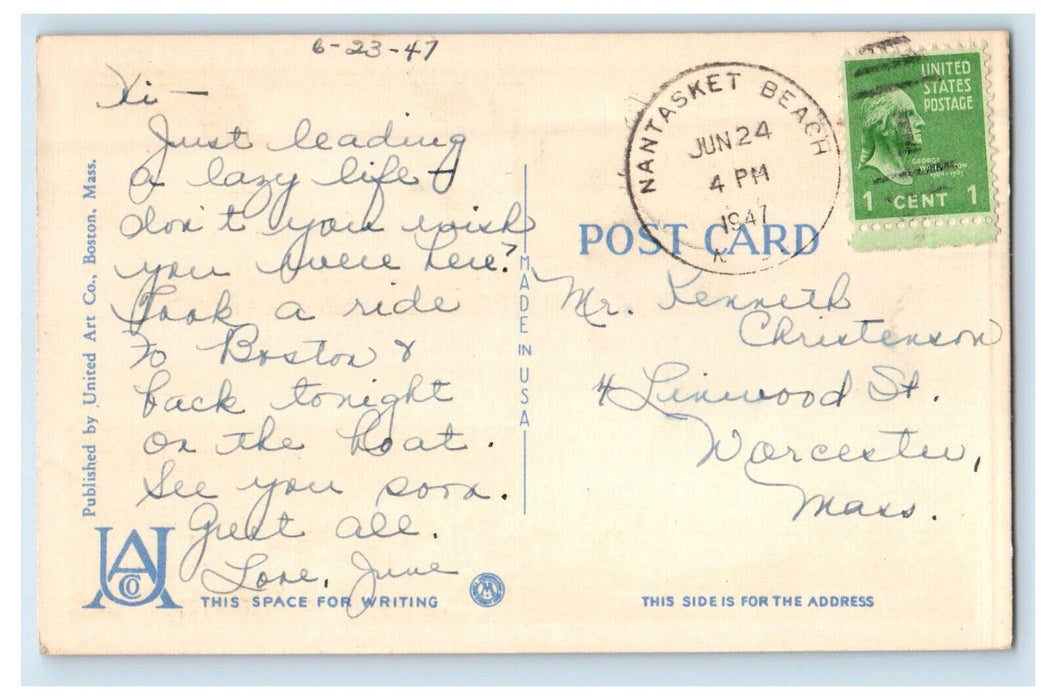 6-23-47
Hi —
Just leading
a lazy life —
don't you wish
you were here?
Took a ride
to Boston &
back tonight
on the boat.
See you soon.
Greet all.
Love, June
Published by United Art Co., Boston, Mass.
UACO
THIS SPACE FOR WRITING
MADE IN USA
NANTASKET BEACH
JUN 24
4 PM
1947
UNITED
STATES
POSTAGE
GEORGE
WASHINGTON
1 CENT 1
POST CARD
Mr. Kenneth
Christenson
4 Linwood St.
Worcester,
Mass.
THIS SIDE IS FOR THE ADDRESS